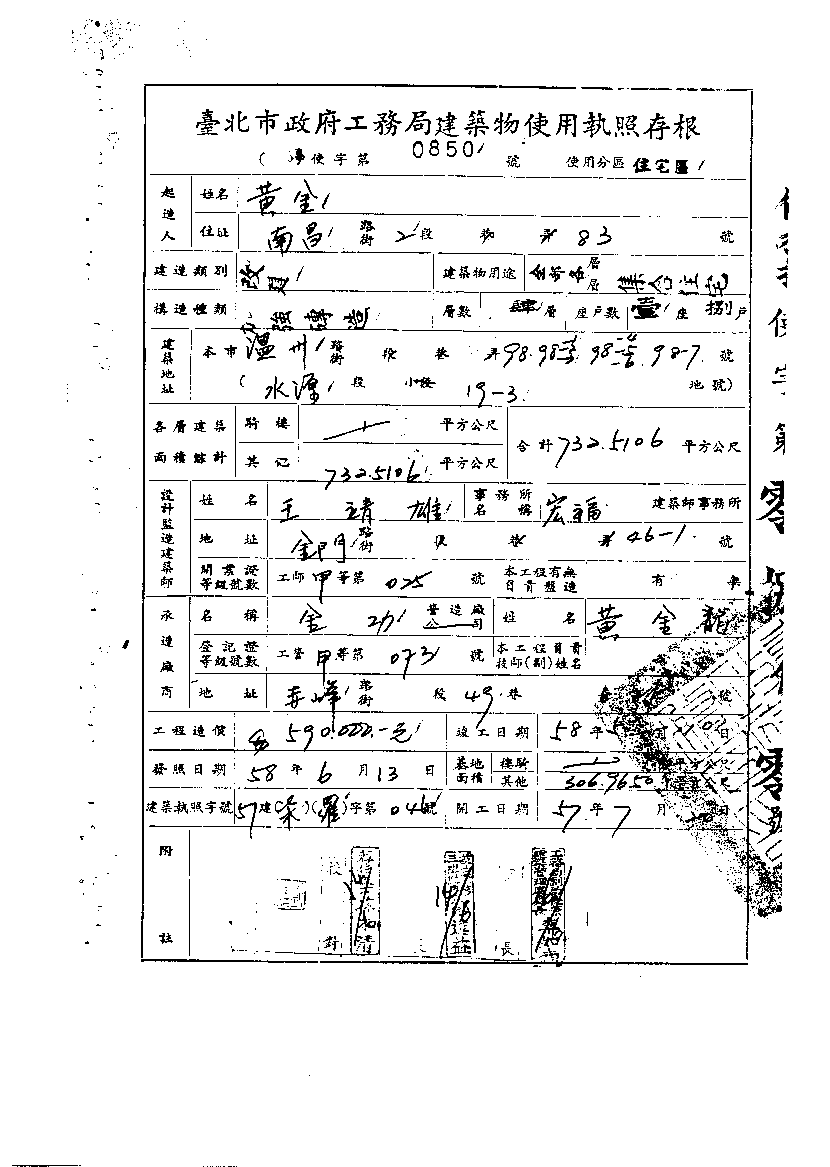 臺北市政府工務局建築物使用執照存根
( 使字第 0850 號 使用分區 住宅區
起造人 姓名 黃金
住址 南昌 路街 2 段 巷 弄 83 號
建造類別 改建 建築物用途 全部各層層 集合住宅
構造種類 加強磚造 層數 肆 層 座戶數 壹 座 捌 戶
建築地址 本市 溫州 路街 段 巷 弄 98.98-3 98-4 98-5 98-6 98-7 號
( 水源 段 小段 19-3 地號)
各層建築面積總計 騎樓 平方公尺 合計 732.5106 平方公尺
其他 732.5106 平方公尺
設計監造建築師 姓名 王靖雄 事務所名稱 宏福 建築師事務所
地址 金門 路街 段 巷 弄 46-1 號
開業證等級號數 工師 甲 等第 025 號 本工程有無自負監造 有 無
承造廠商 名稱 金功 營造廠公司 姓名 黃金龍
登記證等級號數 工營 甲 等第 073 號 本工程負責技師(副)姓名
地址 赤峰 路街 段 49 巷 號
工程造價 590,000.-元 竣工日期 58 年 月 日
發照日期 58 年 6 月 13 日 基地面積 樓騎 平方公尺
其他 306.9650 平方公尺
建築執照字號 57 建( )( )字第 046 號 開工日期 57 年 7 月 日
附註 校對 長
零
零